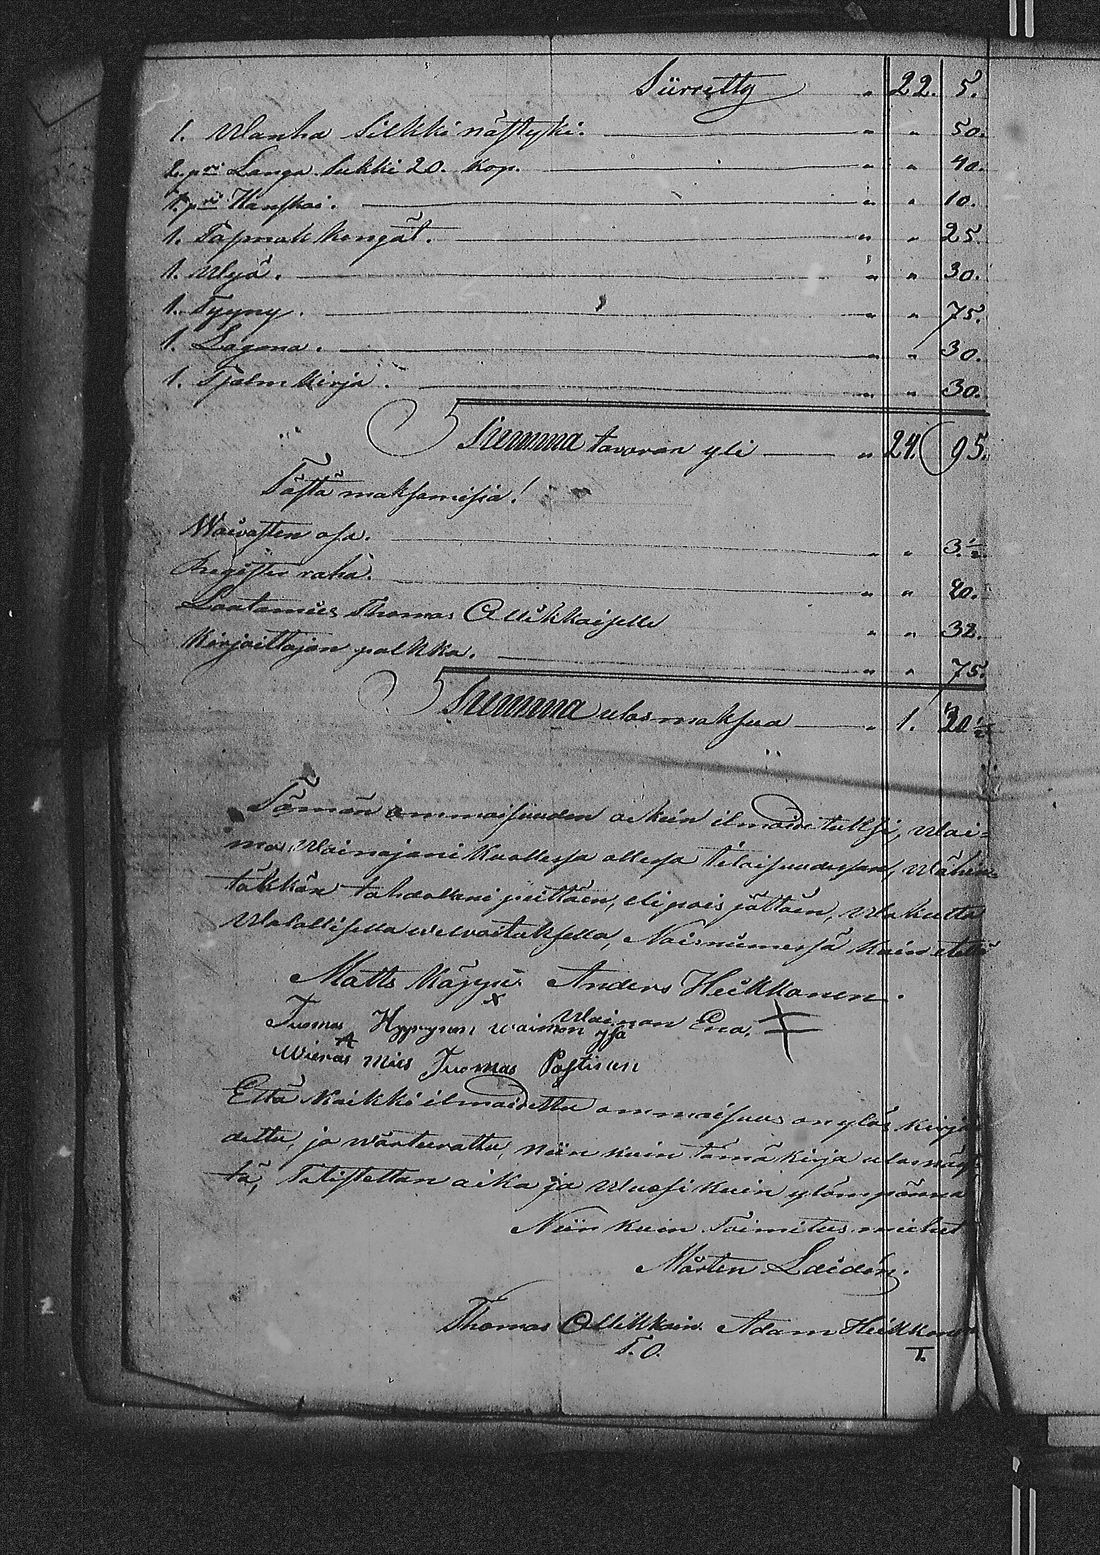 Siirretty " 22. 5.
1. Wanha Silkki nästyki. " " 50.
2. pri Langa Sukki 20. kop. " " 40.
1. pri Hanskai. " " 10.
1. Tapmak kengät. " " 25.
1. Wyä. " " 30.
1. Tyyny. " " 75.
1. Lagana. " " 30.
1. Psalm kirja. " " 30.
Summa tavaran yli " 24. 95.
Tästä maksamisia!
Waivasten osa. " " 3 1/2
Registir raha. " " 20.
Laatamies Thomas Ollikkaiselle " " 32.
Kirjoittajan palkka. " " 75.
Summa ulos maksua " 1. 30 1/2
Tämän ommaisuuden oikein ilmoitetuksi, wai=
ma Wainajani Kuollessa ollessa tilaisuudessan, Wähin=
täkkän tahdollani peittäen, eli pois jättäen, Wakutta
Walallisella welvoituksella, Näisnimessä kuin etellä
Matts Käppi Anders Heikkonen.
x
Tuomas Hyyrynen waimon yjä Wainaan Eva.
Wieras mies Tuomas Pastinen
Että kaikki ilmoidettu ommaisuus on ylös kirjoi
dettu, ja wärteerattu, niin kuin tämä kirja ulos näyt
tä, Totistettan aika ja Wuosi kuin ylämpänä
Niin kuin Toimitus miehet
Mårten Laidin.
Thomas Ollikkain Adam Heikkone
T. O.